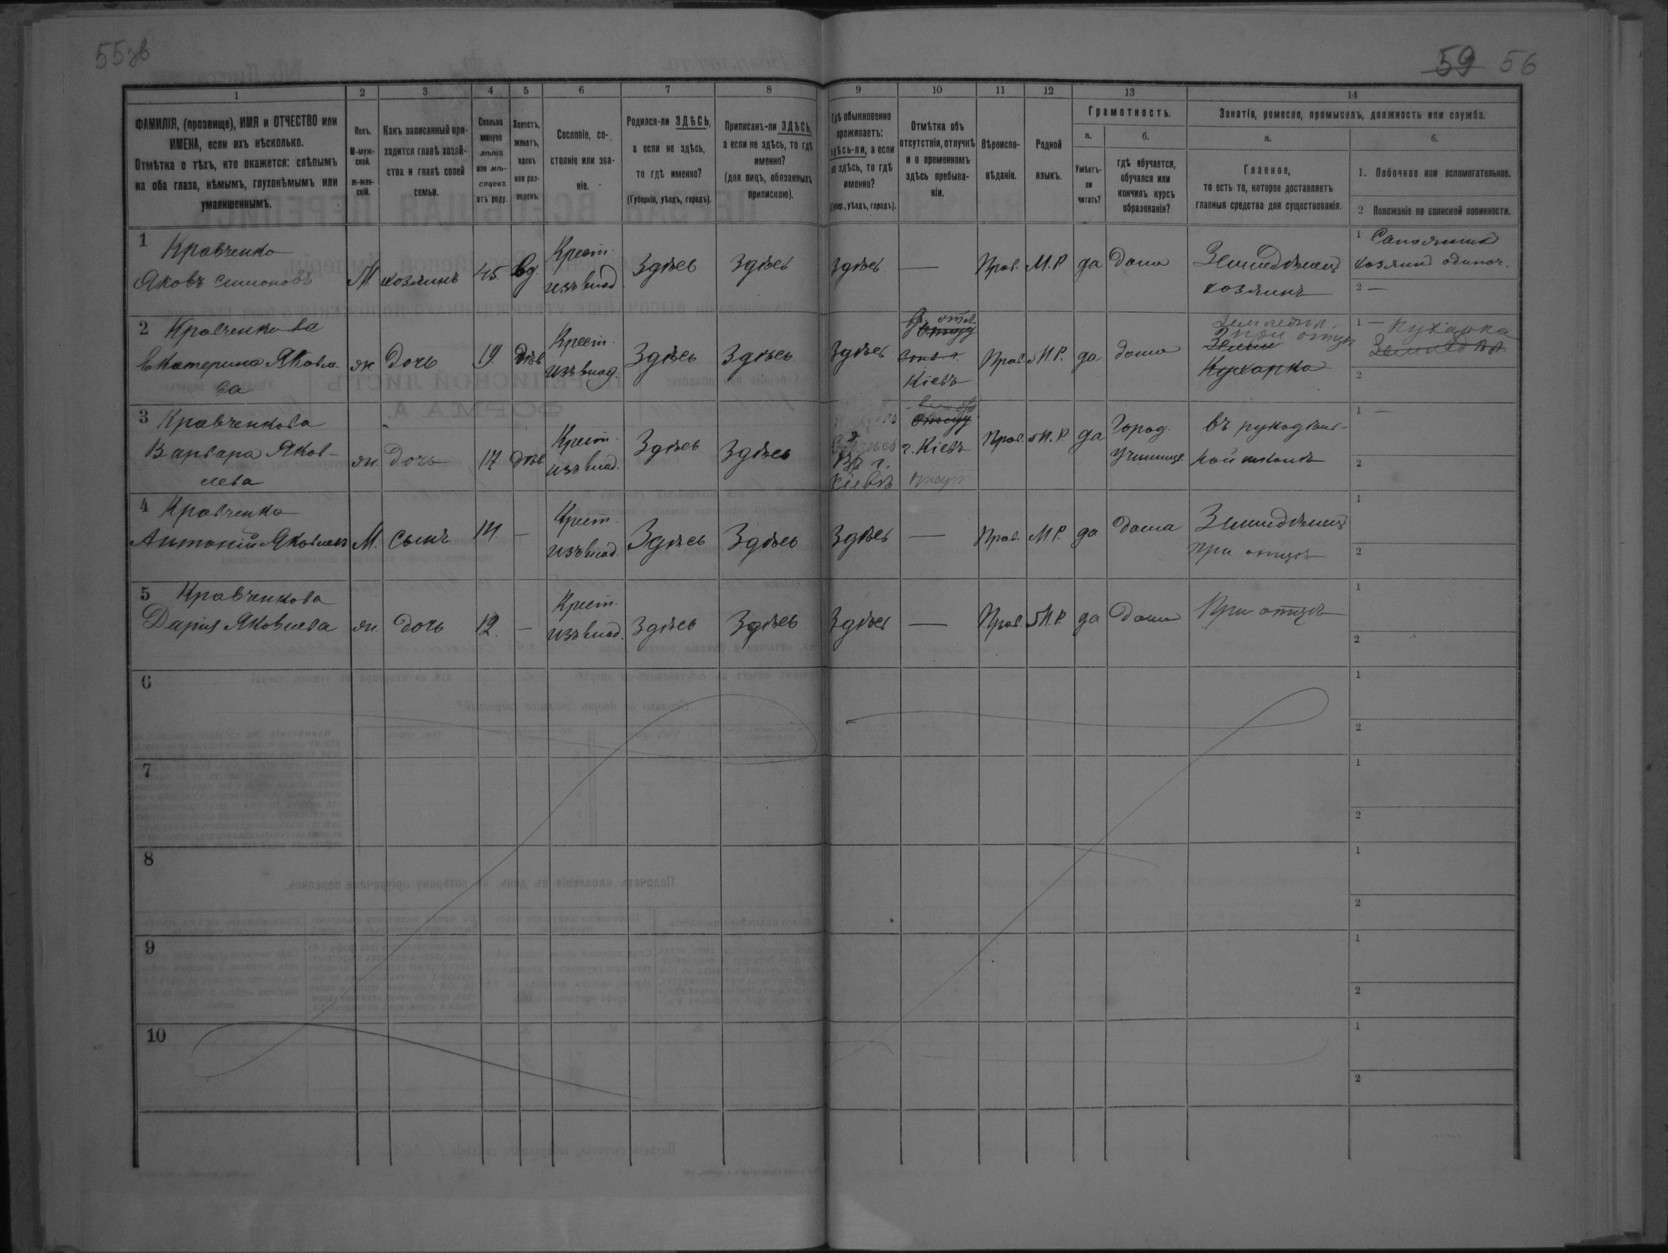 55зв
59 56
1 2 3 4 5 6 7 8 9 10 11 12 13 14
ФАМИЛІЯ, (прозвище), ИМЯ и ОТЧЕСТВО или
ИМЕНА, если ихъ нѣсколько.
Отмѣтка о тѣхъ, кто окажется: слѣпымъ
на оба глаза, нѣмымъ, глухонѣмымъ или
умалишеннымъ.
Полъ.
М-муж-
ской.
ж-жен-
скій.
Какъ записанный при-
ходится главѣ хозяй-
ства и главѣ своей
семьи.
Сколько
минуло
лѣтъ
или мѣ-
сяцевъ
отъ роду.
Холостъ,
женатъ,
вдовъ
или раз-
веденъ.
Сословіе, со-
стояніе или зва-
ніе.
Родился-ли ЗДѢСЬ,
а если не здѣсь,
то гдѣ именно?
(Губернія, уѣздъ, городъ).
Приписанъ-ли ЗДѢСЬ,
а если не здѣсь, то гдѣ
именно?
(для лицъ, обязанныхъ
припискою).
Гдѣ обыкновенно
проживаетъ:
здѣсь-ли, а если
не здѣсь, то гдѣ
именно?
(Губер., уѣздъ, городъ).
Отмѣтка объ
отсутствіи, отлучкѣ
и о временномъ
здѣсь пребыва-
ніи.
Вѣроиспо-
вѣданіе.
Родной
языкъ.
Грамотность.
а.
Умѣетъ-
ли
читать?
б.
гдѣ обучается,
обучался или
кончилъ курсъ
образованія?
Занятія, ремесло, промыселъ, должность или служба.
а.
Главное,
то есть то, которое доставляетъ
главныя средства для существованія.
б.
1. Побочное или вспомогательное.
2 Положеніе по воинской повинности.
1 Кравченко
Яковъ Симоновъ
М хозяинъ 45 вд
Крест.
изъ влад.
Здѣсь Здѣсь Здѣсь — Прав. М.Р да дома
Земледѣлецъ
хозяинъ
1
хозяинъ одиноч.
2 —
2 Кравченкова
Екатерина Яковле
ва
ж дочь 19 дѣв
Крест.
изъ влад
Здѣсь Здѣсь Здѣсь
Кіевъ
Прав. М.Р. да дома
при отцѣ
Кухарка
1 — кухарка
2
3 Кравченкова
Варвара Яков-
лева
ж. дочь 17 дѣв
Крест.
изъ влад.
Здѣсь Здѣсь
Въ г.
Кіевѣ
г. Кіевъ
Прав. М.Р да
Город.
училище
въ рукодѣль-
ной школѣ
1 —
2
4 Кравченко
Антоній Яковлевъ
М. сынъ 14 —
Крест.
изъ влад.
Здѣсь Здѣсь Здѣсь — Прав. М.Р. да дома
Земледѣлецъ
при отцѣ
1
2
5 Кравченкова
Дарія Яковлева
ж. дочь 12. —
Крест.
изъ влад.
Здѣсь Здѣсь Здѣсь — Прав. М.Р. да дома
При отцѣ
1
2
6
1
2
7
1
2
8
1
2
9
1
2
10
1
2